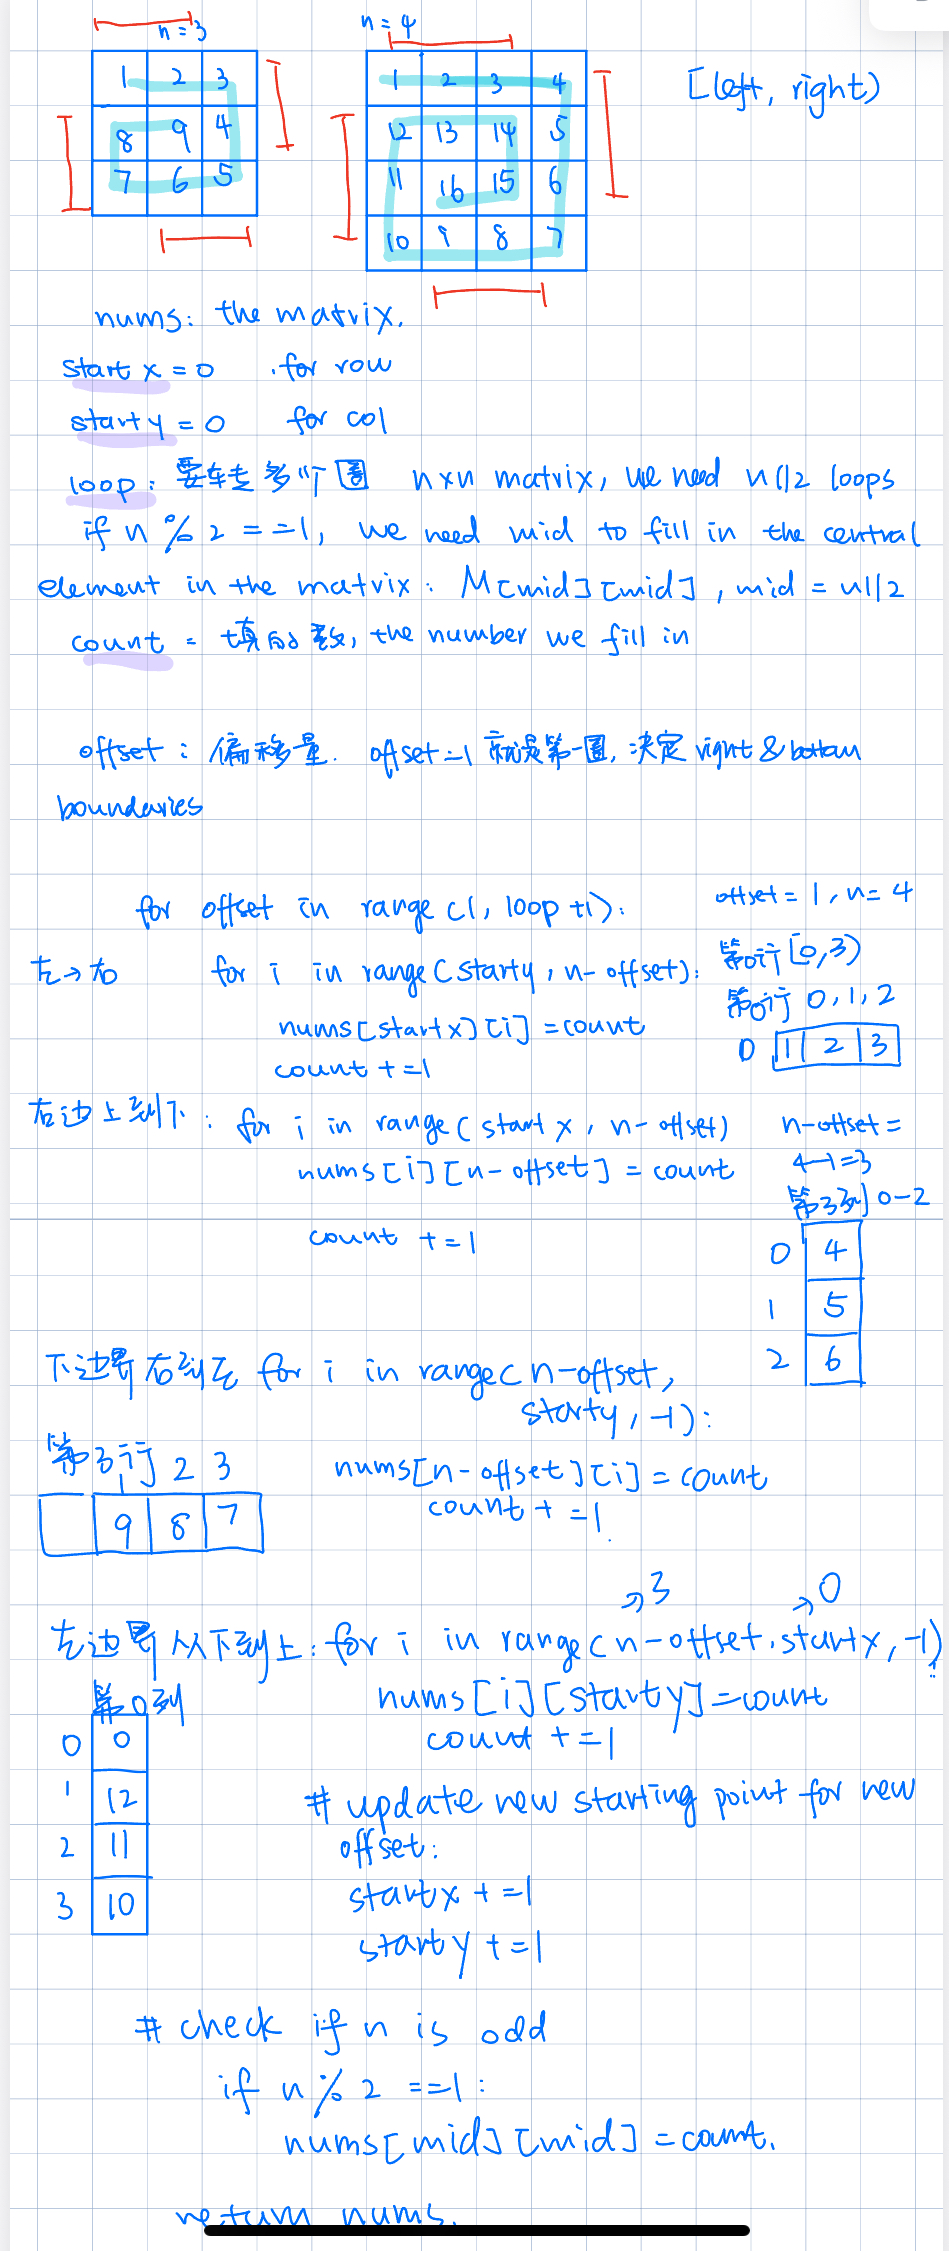 n=3
1 2 3
8 9 4
7 6 5
n=4
1 2 3 4
12 13 14 5
11 16 15 6
10 9 8 7
[left, right)
nums: the matrix.
startx = 0 for row
starty = 0 for col
loop: 要转多个圈 nxn matrix, we need n//2 loops
if n % 2 ==1, we need mid to fill in the central
element in the matrix: M[mid][mid], mid = n//2
count = 填的数, the number we fill in
offset: 偏移量. offset=1 就是第一圈, 决定 right & bottom
boundaries
for offset in range(1, loop+1):
offset = 1, n=4
左→右 for i in range(starty, n-offset):
第0行 [0,3)
nums[startx][i] = count
第0行 0,1,2
count +=1
0 1 2 3
右边上到下: for i in range(startx, n-offset)
n-offset =
nums[i][n-offset] = count
4-1=3
第3列 0-2
count +=1
0 4
1 5
2 6
下边界右到左 for i in range(n-offset,
starty, -1):
第3行 1 2 3
nums[n-offset][i] = count
count +=1
9 8 7
→3 →0
左边界从下到上: for i in range(n-offset, startx, -1):
第0列
nums[i][starty] = count
count +=1
0 0
1 12
2 11
3 10
# update new starting point for new
offset:
startx +=1
starty +=1
# check if n is odd
if n % 2 ==1:
nums[mid][mid] = count.
return nums.